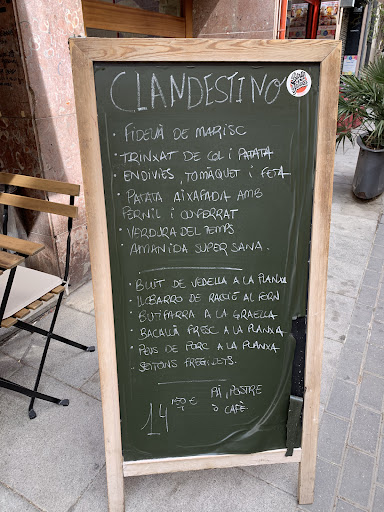 CLANDESTINO
· FIDEUÀ DE MARISC
· TRINXAT DE COL I PATATA
· ENDIVIES, TOMÀQUET I FETA
· PATATA AIXAFADA AMB
PERNIL I
· VERDURA DEL TEMPS
· AMANIDA SUPER SANA.
· BUIT DE VEDELLA A LA PLANXA
· LLOBARRO DE RACIÓ AL FORN
· BUTIFARRA A LA GRAELLA
· BACALLÀ FRESC A LA PLANXA
· PEUS DE PORC A LA PLANXA
· SEITONS FREGITS.
14 €
PÀ, POSTRE
O CAFÈ.